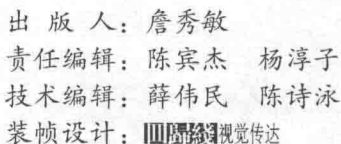 出 版 人：詹秀敏
责任编辑：陈宾杰 杨淳子
技术编辑：薛伟民 陈诗泳
装帧设计：视觉传达